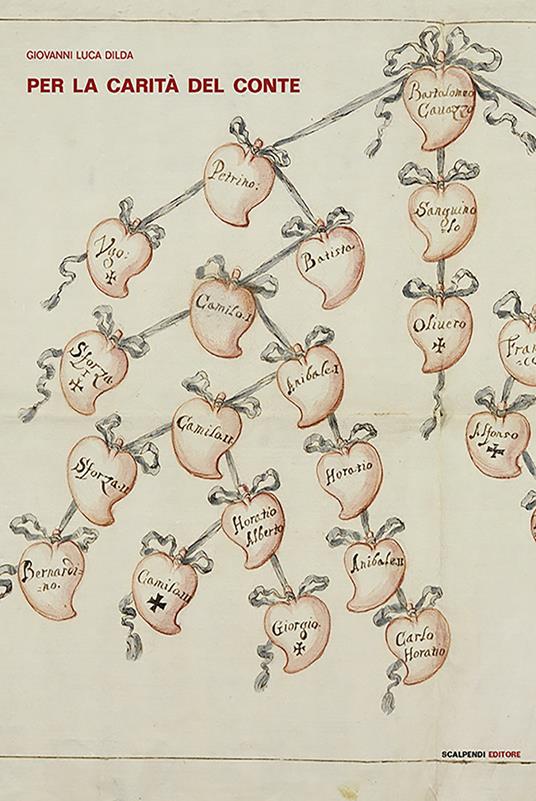 GIOVANNI LUCA DILDA
PER LA CARITÀ DEL CONTE
Bartolomeo
Cauazzo
Petrino:
Sanguino
=lo
Vgo:
Batista
Camilo.I
Oliuero
Fran
=c
Sforza
Anibale.I
Alfonso
Camilo.II
Sforza.II
Horatio
Horatio
Alberto
Bernardi=
no.
Camilo.III
Anibale.II
Giorgio.
Carlo
Horatio
SCALPENDI EDITORE